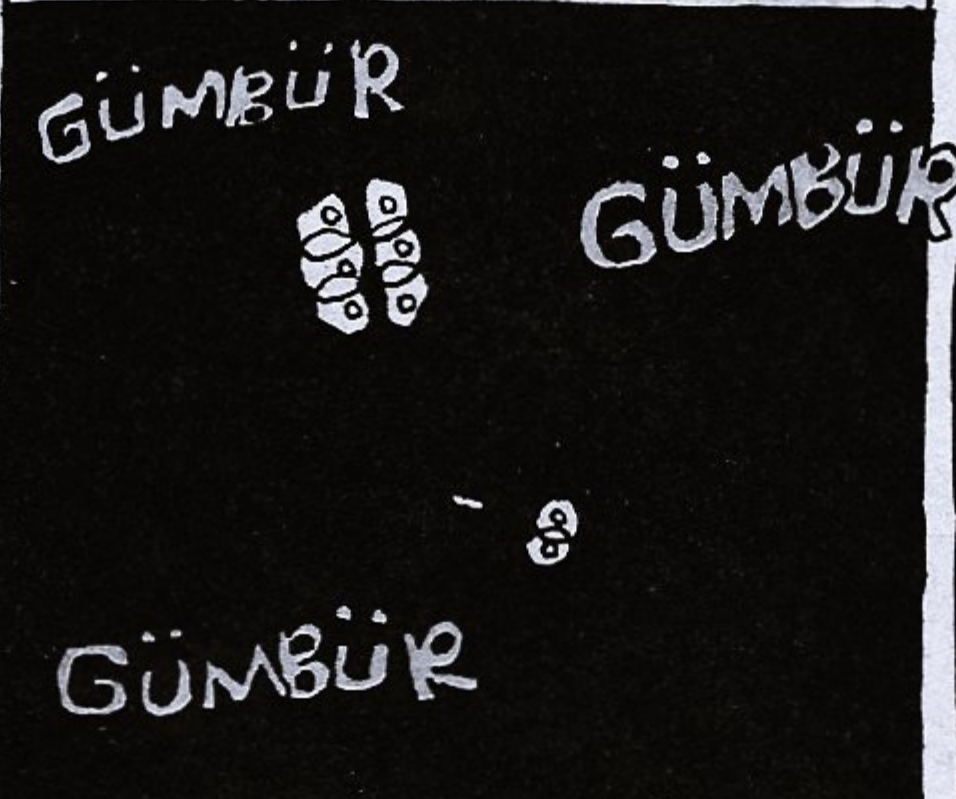 GÜMBÜR
GÜMBÜR
GÜMBÜR